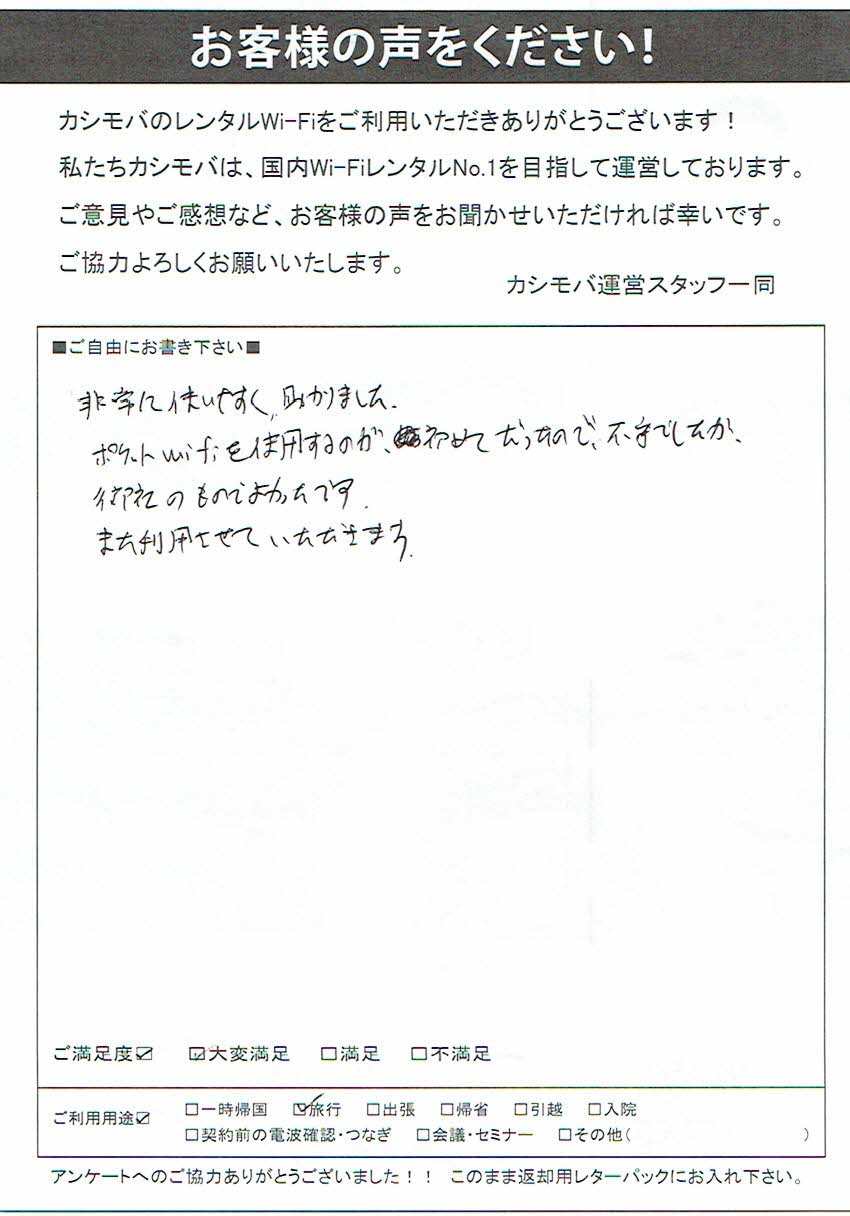 お客様の声をください!
カシモバのレンタルWi-Fiをご利用いただきありがとうございます！
私たちカシモバは、国内Wi-FiレンタルNo.1を目指して運営しております。
ご意見やご感想など、お客様の声をお聞かせいただければ幸いです。
ご協力よろしくお願いいたします。
カシモバ運営スタッフ一同
■ご自由にお書き下さい■
非常に使いやすく、助かりました。
ポケットwifiを使用するのが、初めてだったので、不安でしたが、
御社のものでよかったです。
また利用させていただきます。
ご満足度☑ ☑大変満足 □満足 □不満足
ご利用用途☑ □一時帰国 ☑旅行 □出張 □帰省 □引越 □入院
□契約前の電波確認・つなぎ □会議・セミナー □その他( )
アンケートへのご協力ありがとうございました！！ このまま返却用レターパックにお入れ下さい。